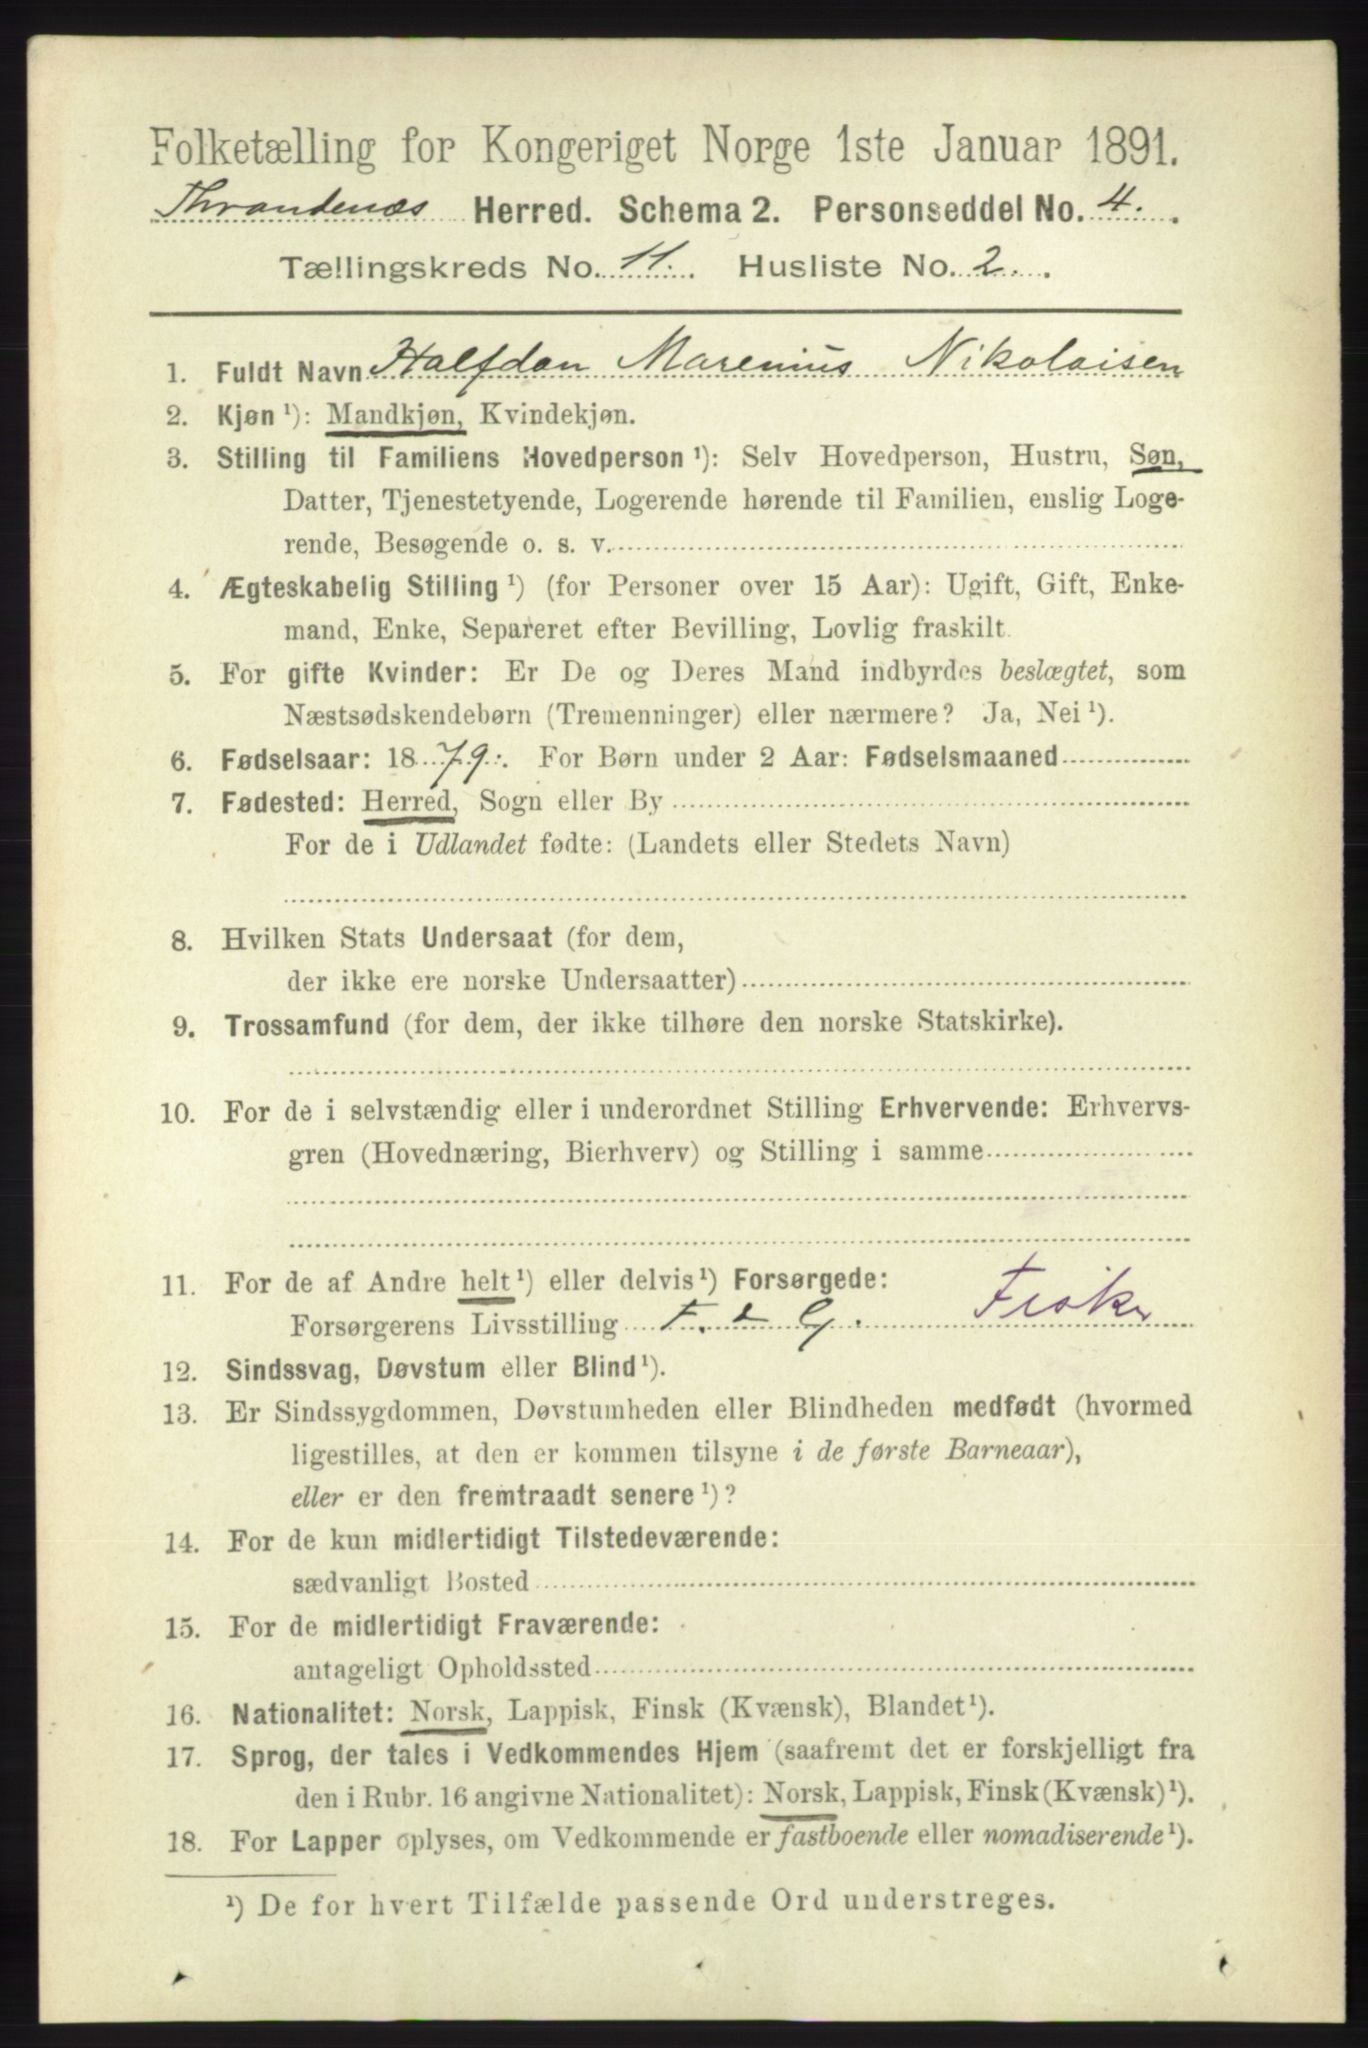 Folketælling for Kongeriget Norge 1ste Januar 1891.
Thrandenæs Herred. Schema 2. Personseddel No. 4.
Tællingskreds No. 11. Husliste No. 2.
1. Fuldt Navn Halfdan Marenius Nikolaisen
2. Kjøn ¹): Mandkjøn, Kvindekjøn.
3. Stilling til Familiens Hovedperson ¹): Selv Hovedperson, Hustru, Søn,
Datter, Tjenestetyende, Logerende hørende til Familien, enslig Loge-
rende, Besøgende o. s. v.
4. Ægteskabelig Stilling ¹) (for Personer over 15 Aar): Ugift, Gift, Enke-
mand, Enke, Separeret efter Bevilling, Lovlig fraskilt
5. For gifte Kvinder: Er De og Deres Mand indbyrdes beslægtet, som
Næstsødskendebørn (Tremenninger) eller nærmere? Ja, Nei ¹).
6. Fødselsaar: 1879. For Børn under 2 Aar: Fødselsmaaned
7. Fødested: Herred, Sogn eller By
For de i Udlandet fødte: (Landets eller Stedets Navn)
8. Hvilken Stats Undersaat (for dem,
der ikke ere norske Undersaatter)
9. Trossamfund (for dem, der ikke tilhøre den norske Statskirke).
10. For de i selvstændig eller i underordnet Stilling Erhvervende: Erhvervs-
gren (Hovednæring, Bierhverv) og Stilling i samme
11. For de af Andre helt ¹) eller delvis ¹) Forsørgede:
Forsørgerens Livsstilling F. & G. Fisker
12. Sindssvag, Døvstum eller Blind ¹).
13. Er Sindssygdommen, Døvstumheden eller Blindheden medfødt (hvormed
ligestilles, at den er kommen tilsyne i de første Barneaar),
eller er den fremtraadt senere ¹)?
14. For de kun midlertidigt Tilstedeværende:
sædvanligt Bosted
15. For de midlertidigt Fraværende:
antageligt Opholdssted
16. Nationalitet: Norsk, Lappisk, Finsk (Kvænsk), Blandet ¹).
17. Sprog, der tales i Vedkommendes Hjem (saafremt det er forskjelligt fra
den i Rubr. 16 angivne Nationalitet): Norsk, Lappisk, Finsk (Kvænsk) ¹).
18. For Lapper oplyses, om Vedkommende er fastboende eller nomadiserende ¹).
¹) De for hvert Tilfælde passende Ord understreges.